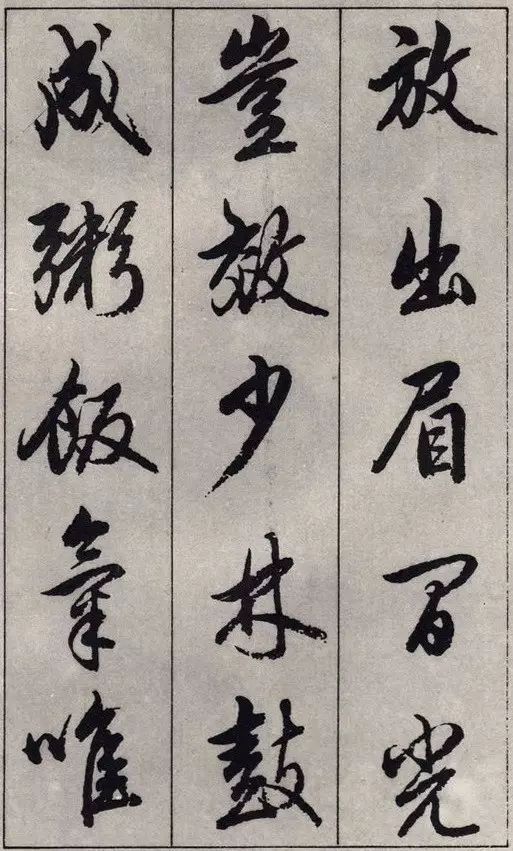 放出眉間光
豈少林鼓
成粥飯氣唯